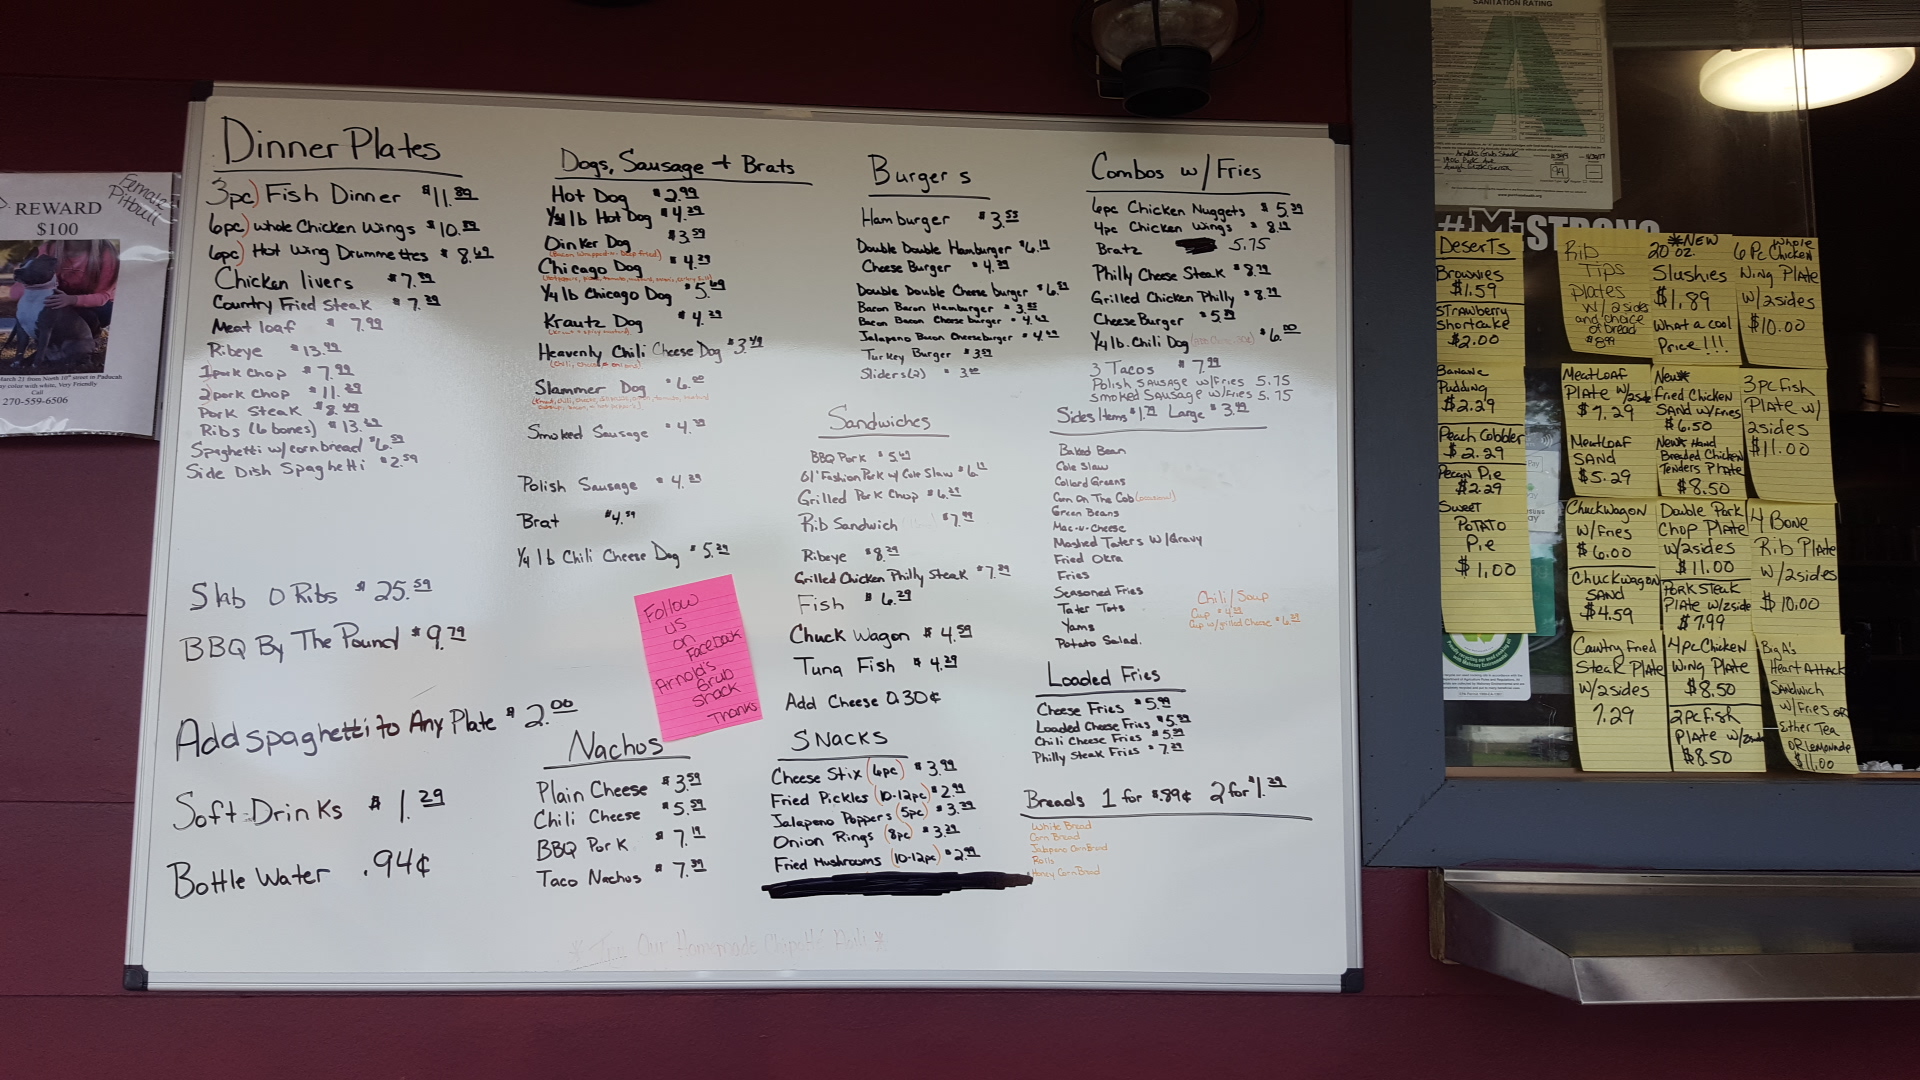 REWARD
$100
Female
Pitbull
Call
270-559-6506
Dinner Plates
3pc) Fish Dinner $11.89
6pc) whole Chicken Wings $10.89
6pc) Hot Wing Drummettes $8.69
Chicken livers $7.99
Country Fried Steak $7.29
Meat loaf $7.99
Ribeye $13.99
1pork chop $7.99
2pork chop $11.29
Pork Steak $8.49
Ribs (6 bones) $13.
Spaghetti w/cornbread $6.59
Side Dish Spaghetti $2.59
Slab O Ribs $25.59
BBQ By The Pound $9.79
Add spaghetti to Any Plate $2.00
Soft Drinks $1.29
Bottle Water .94¢
Dogs, Sausage + Brats
Hot Dog $2.99
1/4 lb Hot Dog $4.29
Oinker Dog $3.59
(Bacon wrapped-n-Deep fried)
Chicago Dog $4.29
1/4 lb Chicago Dog $5.69
Krautz Dog $4.29
Heavenly Chili Cheese Dog $3.49
Slammer Dog $6.00
Smoked Sausage $4.39
Polish Sausage $4.39
Brat $4.59
1/4 lb Chili Cheese Dog $5.29
Follow
us
on
FaceBook
Arnold's
Grub
Shack
Thanks
Nachos
Plain Cheese $3.59
Chili Cheese $5.59
BBQ Pork $7.19
Taco Nachos $7.39
Burgers
Hamburger $3.55
Double Double Hamburger $6.19
Cheese Burger $4.29
Double Double Cheese burger $6.
Bacon Bacon Hamburger $3.
Bacon Bacon Cheese burger $4.
Jalapeno Bacon Cheeseburger $4.
Turkey Burger $3.59
Sliders(2) $3.00
Sandwiches
BBQ Pork $5.49
Ol' Fashion Pork w/ Cole Slaw $6.19
Grilled Pork Chop $6.29
Rib Sandwich $7.99
Ribeye $8.29
Grilled Chicken Philly Steak $7.29
Fish $6.29
Chuck Wagon $4.59
Tuna Fish $4.29
Add Cheese 0.30¢
Snacks
Cheese Stix (6pc) $3.99
Fried Pickles (10-12pc) $2.99
Jalapeno Poppers (5pc) $3.39
Onion Rings (8pc) $3.29
Fried Mushrooms (10-12pc) $2.99
Combos w/Fries
6pc Chicken Nuggets $5.39
4pc Chicken Wings $8.19
Bratz 5.75
Philly Cheese Steak $8.79
Grilled Chicken Philly $8.79
Cheese Burger $5.
1/4 lb. Chili Dog $6.00
3 Tacos $7.99
Polish Sausage w/Fries 5.75
Smoked Sausage w/Fries 5.75
Sides Items $1.79 Large $3.49
Baked Bean
Cole Slaw
Collard Greens
Corn On The Cob (seasonal)
Green Beans
Mac-n-Cheese
Mashed Taters w/Gravy
Fried Okra
Fries
Seasoned Fries
Tater Tots
Yams
Potato Salad
Chili/Soup
Cup $4.
Cup w/grilled Cheese $6.
Loaded Fries
Cheese Fries $5.
Loaded Cheese Fries $5.
Chili Cheese Fries $5.
Philly Steak Fries $7.29
Breads 1 for $.89¢ 2 for $1.39
White Bread
Corn Bread
Jalapeno CornBread
Rolls
Honey Corn Bread
* Try Our Homemade Chipotle Aoili *
SANITATION RATING
A
Arnolds Grub Shack
99
#M-STRONG
Deserts
Brownies
$1.59
Strawberry
shortcake
$2.00
Banana
Pudding
$2.29
Peach Cobbler
$2.29
Pecan Pie
$2.29
Sweet
Potato
Pie
$1.00
Rib
Tips
Plates
w/2 sides
and choice
of bread
$8.99
*New
20 oz.
Slushies
$1.89
What a cool
Price!!!
6 Pc Whole Chicken
Wing Plate
w/2sides
$10.00
Meatloaf
Plate w/2sds
$7.29
Meatloaf
Sand
$5.29
New*
Fried Chicken
Sand w/Fries
$6.50
New* Hand
Breaded Chicken
Tenders Plate
$8.50
3pc Fish
Plate w/
2sides
$11.00
Chuckwagon
w/Fries
$6.00
Chuckwagon
Sand
$4.59
Double Pork
Chop Plate
w/2sides
$11.00
Pork Steak
Plate w/2side
$7.99
4 Bone
Rib Plate
w/2sides
$10.00
Country Fried
Steak Plate
w/2sides
7.29
4pc Chicken
Wing Plate
$8.50
2pc Fish
Plate w/2sides
$8.50
Big A's
Heart Attack
Sandwich
w/Fries or
Either Tea
or Lemonade
$11.00